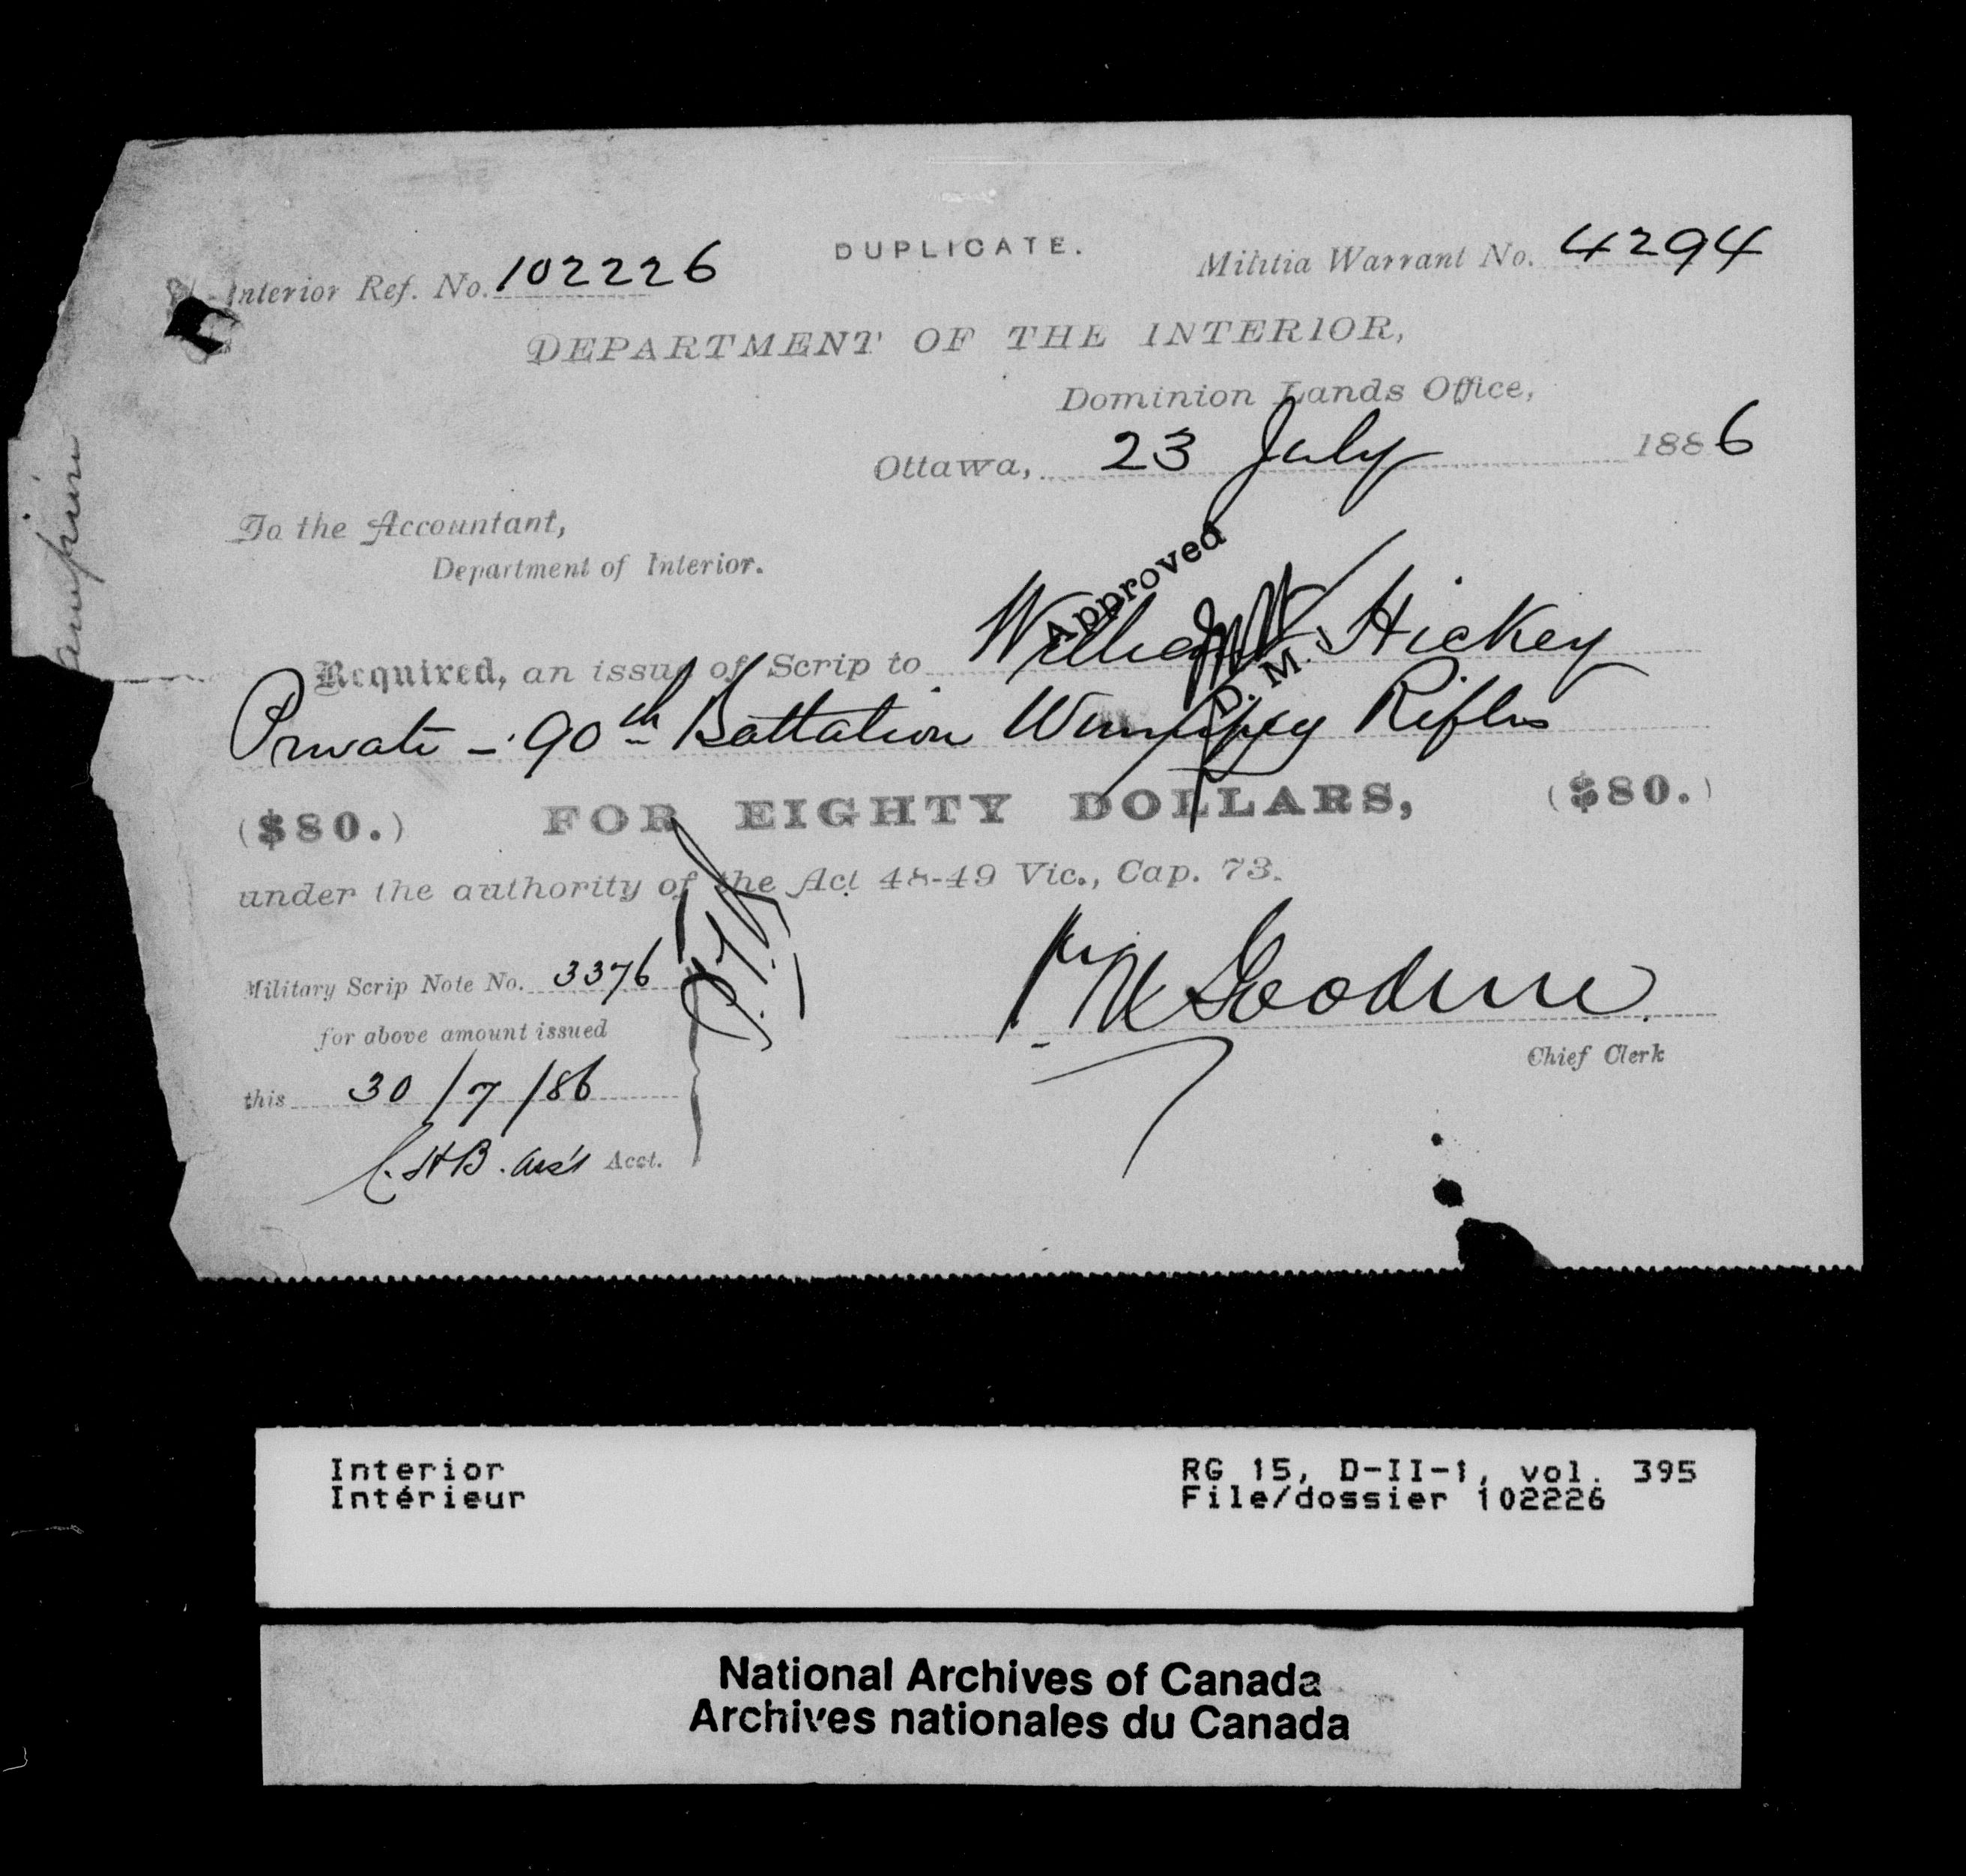 DUPLICATE.
Interior Ref. No. 102226
Militia Warrant No. 4294
DEPARTMENT OF THE INTERIOR,
Dominion Lands Office,
Ottawa, 23 July 1886
To the Accountant,
Department of Interior.
Approved
D. M. I
Required, an issue of Scrip to William Hickey
Private - 90th Battalion Winnipeg Rifles
($80.) FOR EIGHTY DOLLARS, ($80.)
under the authority of the Act 48-49 Vic., Cap. 73.
Military Scrip Note No. 3376
for above amount issued
this 30/7/86
C.H.B. Ass't Acct.
Chief Clerk
Interior
Intérieur
RG 15, D-II-1, vol. 395
File/dossier 102226
National Archives of Canada
Archives nationales du Canada